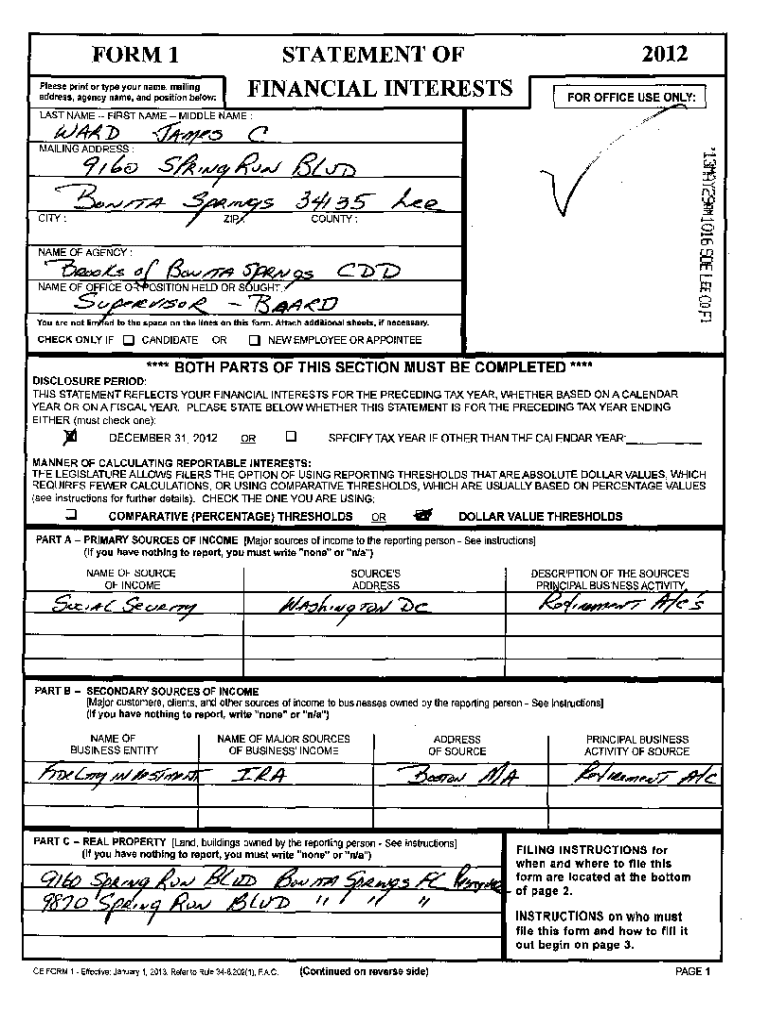 FORM 1 STATEMENT OF 2012
FINANCIAL INTERESTS
Please print or type your name, mailing
address, agency name, and position below:
FOR OFFICE USE ONLY:
LAST NAME -- FIRST NAME -- MIDDLE NAME :
WARD James C
MAILING ADDRESS :
9160 Spring Run BLVD
Bonita Springs 34135 Lee
CITY : ZIP : COUNTY :
NAME OF AGENCY :
Brooks of Bonita Springs CDD
NAME OF OFFICE OR POSITION HELD OR SOUGHT :
Supervisor - BAARD
You are not limited to the space on the lines on this form. Attach additional sheets, if necessary.
CHECK ONLY IF ☐ CANDIDATE OR ☐ NEW EMPLOYEE OR APPOINTEE
'13MAY29AM1016 SOE LEE CO Fl
**** BOTH PARTS OF THIS SECTION MUST BE COMPLETED ****
DISCLOSURE PERIOD:
THIS STATEMENT REFLECTS YOUR FINANCIAL INTERESTS FOR THE PRECEDING TAX YEAR, WHETHER BASED ON A CALENDAR
YEAR OR ON A FISCAL YEAR. PLEASE STATE BELOW WHETHER THIS STATEMENT IS FOR THE PRECEDING TAX YEAR ENDING
EITHER (must check one):
☒ DECEMBER 31, 2012 OR ☐ SPECIFY TAX YEAR IF OTHER THAN THE CALENDAR YEAR:
MANNER OF CALCULATING REPORTABLE INTERESTS:
THE LEGISLATURE ALLOWS FILERS THE OPTION OF USING REPORTING THRESHOLDS THAT ARE ABSOLUTE DOLLAR VALUES, WHICH
REQUIRES FEWER CALCULATIONS, OR USING COMPARATIVE THRESHOLDS, WHICH ARE USUALLY BASED ON PERCENTAGE VALUES
(see instructions for further details). CHECK THE ONE YOU ARE USING:
☐ COMPARATIVE (PERCENTAGE) THRESHOLDS OR ☒ DOLLAR VALUE THRESHOLDS
PART A -- PRIMARY SOURCES OF INCOME [Major sources of income to the reporting person - See instructions]
(If you have nothing to report, you must write "none" or "n/a")
NAME OF SOURCE SOURCE'S DESCRIPTION OF THE SOURCE'S
OF INCOME ADDRESS PRINCIPAL BUSINESS ACTIVITY
Social Security Washington DC Retirement A/c's
PART B -- SECONDARY SOURCES OF INCOME
[Major customers, clients, and other sources of income to businesses owned by the reporting person - See instructions]
(If you have nothing to report, write "none" or "n/a")
NAME OF NAME OF MAJOR SOURCES ADDRESS PRINCIPAL BUSINESS
BUSINESS ENTITY OF BUSINESS' INCOME OF SOURCE ACTIVITY OF SOURCE
Fidelity investment IRA Boston MA Retirement A/c
PART C -- REAL PROPERTY [Land, buildings owned by the reporting person - See instructions]
(If you have nothing to report, you must write "none" or "n/a")
9160 Spring Run BLVD Bonita Springs FL
9870 Spring Run BLVD " " "
FILING INSTRUCTIONS for
when and where to file this
form are located at the bottom
of page 2.
INSTRUCTIONS on who must
file this form and how to fill it
out begin on page 3.
CE FORM 1 - Effective: January 1, 2013. Refer to Rule 34-8.202(1), F.A.C. (Continued on reverse side) PAGE 1